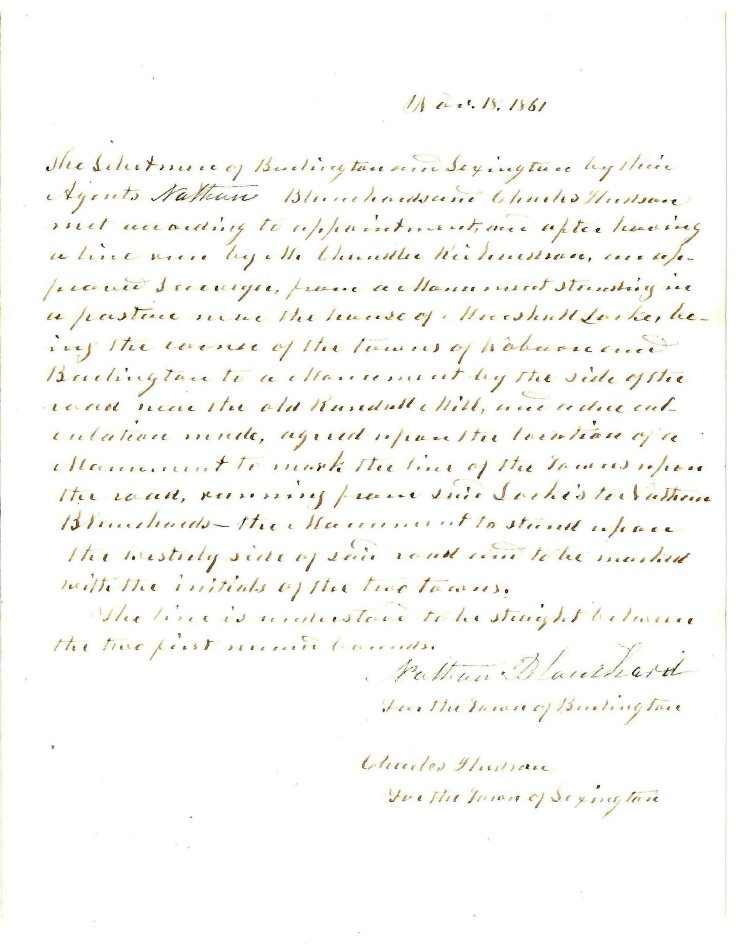 Nov. 18. 1861
The Selectmen of Burlington and Lexington by their
Agents Nathan Blanchard and Charles Hudson
met according to appointment, and after having
a line run by Mr Chandler Richardson, an ap-
proved Surveyor, from a Monument standing in
a pasture near the house of Marshall Locke, be-
ing the corner of the towns of Woburn and
Burlington to a Monument by the side of the
road near the old Randall Mill, and a due cal-
culation made, agreed upon the location of a
Monument to mark the line of the Towns upon
the road, running from said Locke's to Nathan
Blanchards — the Monument to stand upon
the westerly side of said road and to be marked
with the initials of the two towns.
The line is understood to be straight between
the two first named bounds.
Nathan Blanchard
For the Town of Burlington
Charles Hudson
For the Town of Lexington